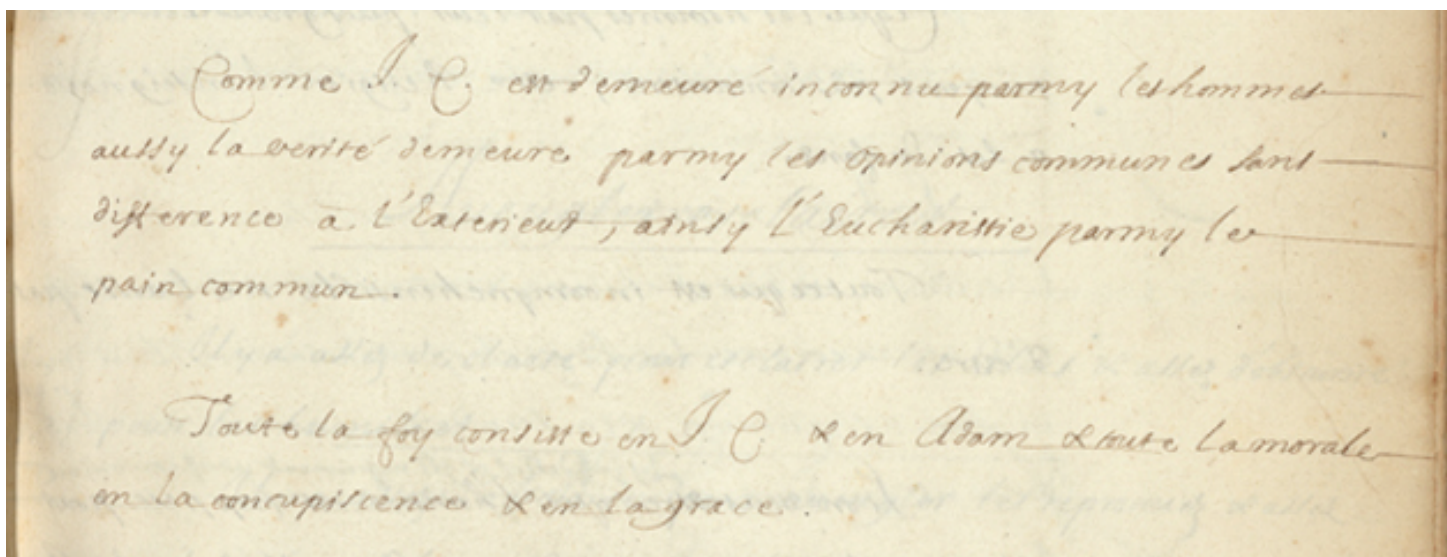 Comme J. C. est demeuré inconnu parmy les hommes
aussy la verité demeure parmy les opinions communes sans
difference à l'Exterieur, ainsy l'Eucharistie parmy le
pain commun.
Toute la foy consiste en J. C. & en Adam & toute la morale
en la concupiscence & en la grace.